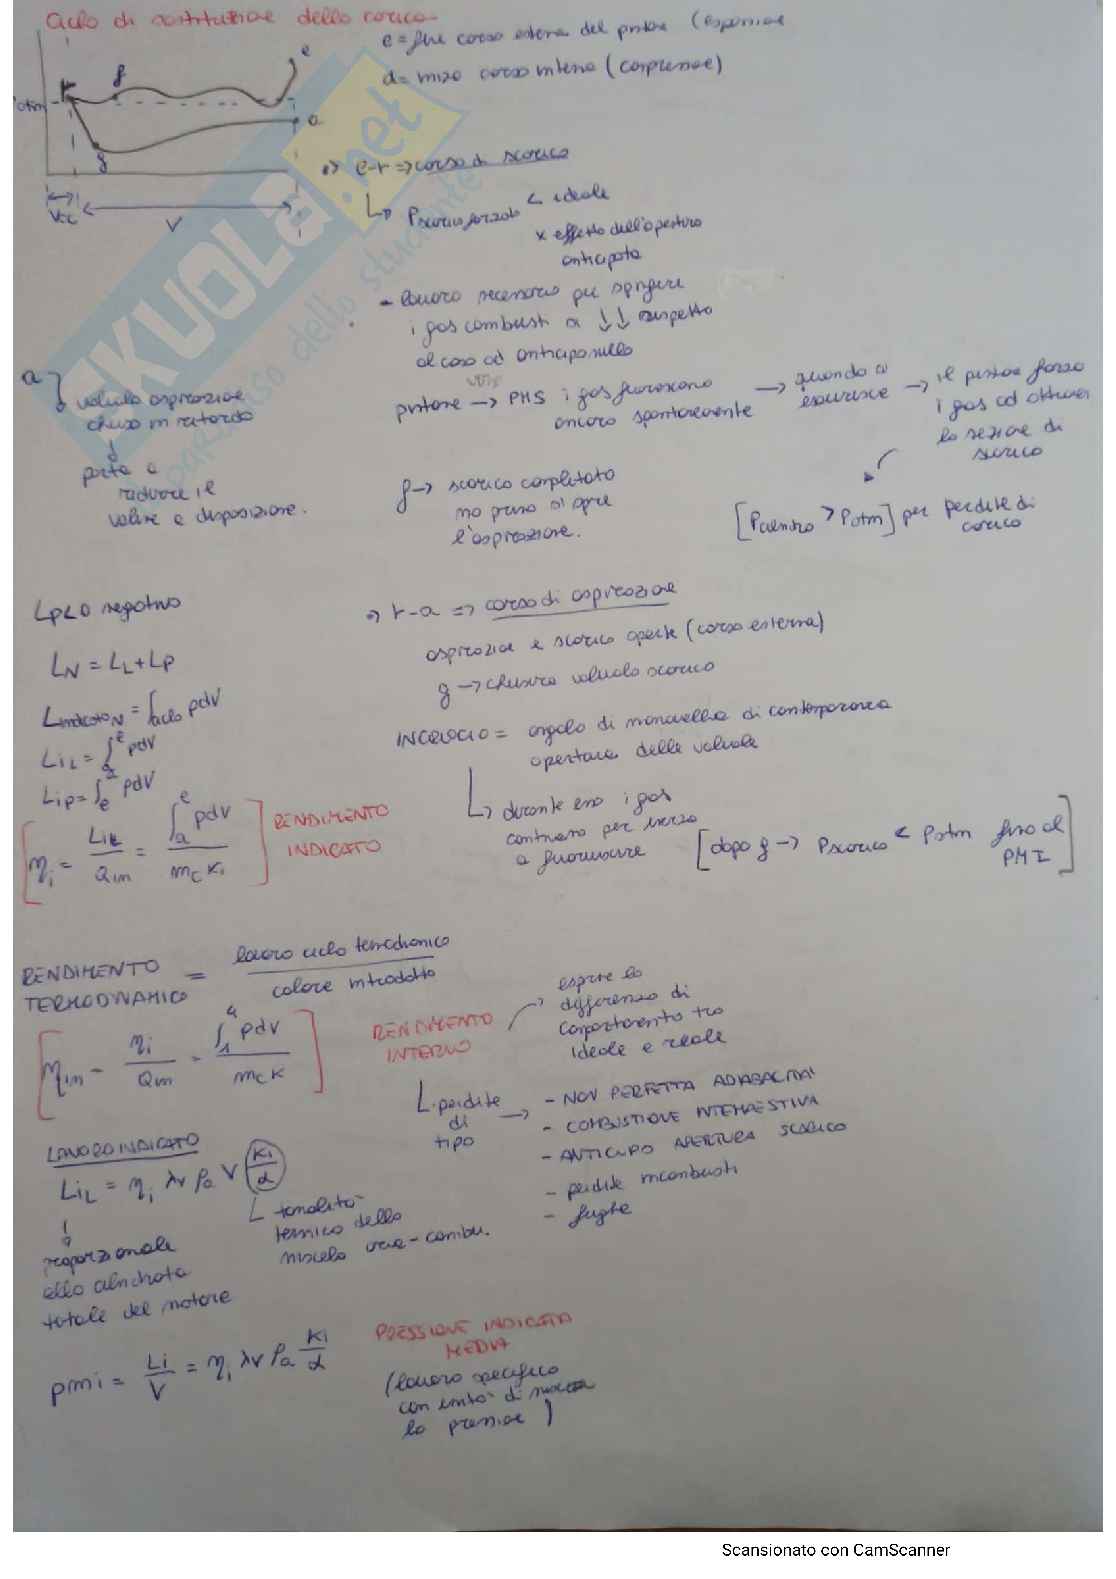 Ciclo di sostituzione della carica
e = fine corsa esterna del pistone (espansione
a = inizio corsa interna (compressione)
f
e
r
patm
a
g
Vcc
V
SKUOLA.net
paradiso dello studente
⇒ e-r ⇒ corsa di scarico
↳ Pscarico forzato < ideale
x effetto dell'apertura
anticipata
- lavoro necessario per spingere
i gas combusti è ↓↓ rispetto
al caso ad anticipo nullo
pistone → PMS i gas fuoriescono
ancora spontaneamente
→ quando si
esaurisce
→ il pistone forza
i gas ad attraver
la sezione di
scarico
[Pcilindro > Patm] per perdite di
carico
a
valvola aspirazione
chiusa in ritardo
↓
porta a
ridurre il
volume a disposizione.
f → scarico completato
ma prima si apre
l'aspirazione.
Lp<0 negativo
LN = LL + LP
Lindicato N = ∫ciclo pdV
LiL = ∫ₐᵉ pdV
LiP = ∫ₑᵃ pdV
[ηi = LiL/Qin = ∫ₐᵉ pdV / mc Ki]
RENDIMENTO
INDICATO
⇒ r-a ⇒ corsa di aspirazione
aspirazione e scarico aperte (corsa esterna)
g → chiusura valvola scarico
INCROCIO = angolo di manovella di contemporanea
apertura delle valvole
↳ durante esso i gas
continuano per inerzia
a fuoriuscire
[dopo g → Pscarico < Patm fino al
PMI]
RENDIMENTO
TERMODINAMICO
= lavoro ciclo termodinamico
calore introdotto
[ηin = ηi/Qin = ∫₁⁴ pdV / mc K]
RENDIMENTO
INTERNO
esprime la
differenza di
comportamento tra
ideale e reale
↳ perdite
di
tipo
→ - NON PERFETTA ADIABACITÀ
- COMBUSTIONE INTEMPESTIVA
- ANTICIPO APERTURA SCARICO
- perdite incombusti
- fughe
LAVORO INDICATO
LiL = ηi λv ρa V Ki/α
↓
proporzionale
alla cilindrata
totale del motore
↳ tonalità
termica della
miscela aria-combu.
pmi = Li/V = ηi λv ρa Ki/α
PRESSIONE INDICATA
MEDIA
(lavoro specifico
con unità di misura
la pressione)
Scansionato con CamScanner